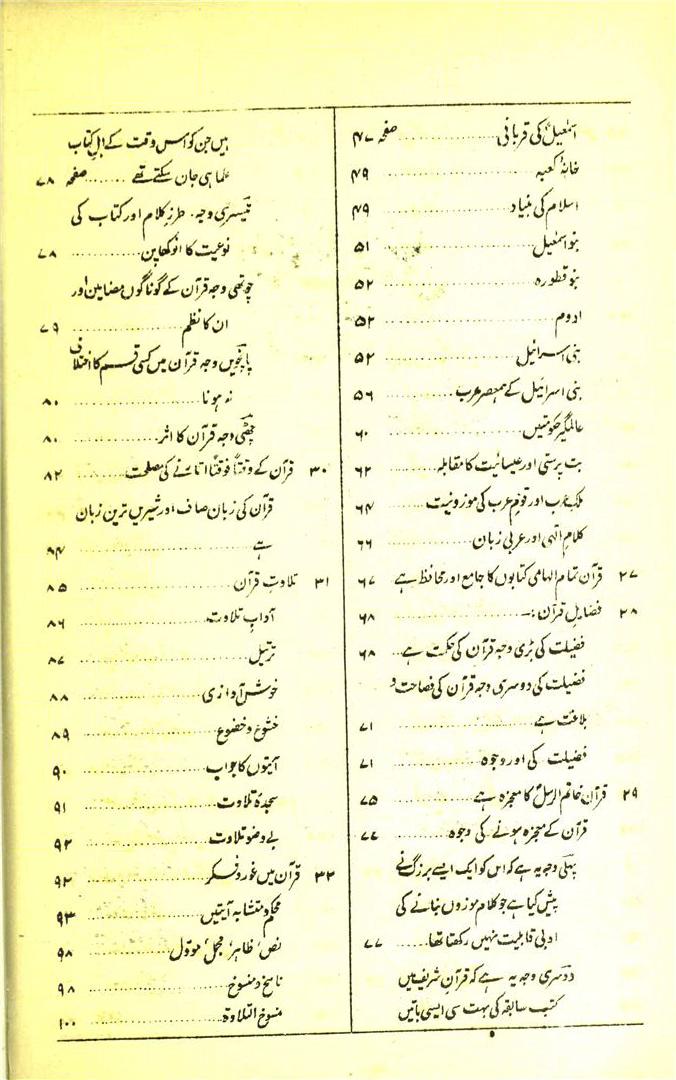 اسمٰعیل کی قربانی ............ صفحہ ۴۷
خانۂ کعبہ ............ ۴۹
اسلام کی بنیاد ............ ۴۹
بنو اسمٰعیل ............ ۵۱
بنو قطورہ ............ ۵۲
ادوم ............ ۵۲
بنی اسرائیل ............ ۵۲
بنی اسرائیل کے ہمعصر عرب ............ ۵۶
عالمگیر حکومتیں ............ ۶۰
بت پرستی اور عیسائیت کا مقابلہ ............ ۶۲
ملک عرب اور قوم عرب کی موزونیت ............ ۶۴
کلام الٰہی اور عربی زبان ............ ۶۶
۲۷ قرآن تمام الہامی کتابوں کا جامع اور محافظ ہے ۶۷
۲۸ فضایل قرآن :— ............ ۶۸
فضیلت کی بڑی وجہ قرآن کی حکمت ہے ... ۶۸
فضیلت کی دوسری وجہ قرآن کی فصاحت و
بلاغت ہے ............ ۷۱
فضیلت کی اور وجوہ ............ ۷۱
۲۹ قرآن خاتم الرسلؐ کا معجزہ ہے ............ ۷۵
قرآن کے معجزہ ہونے کی وجوہ ............ ۷۷
پہلی وجہ یہ ہے کہ اس کو ایک ایسے بزرگ نے
پیش کیا ہے جو کلام موزوں بنانے کی
ادبی قابلیت نہیں رکھتا تھا ...... ۷۷
دوسری وجہ یہ ہے کہ قرآن شریف میں
کتب سابقہ کی بہت سی ایسی باتیں
ہیں جن کو اس وقت کے اہل کتاب
علما ہی جان سکتے تھے ........ صفحہ ۷۸
تیسری وجہ۔ طرز کلام اور کتاب کی
نوعیت کا انوکھا پن ............ ۷۸
چوتھی وجہ قرآن کے گوناگوں مضامین اور
ان کا نظم ............ ۷۹
پانچویں وجہ قرآن میں کسی قسم کا اختلاف
نہ ہونا ............ ۸۰
چھٹی وجہ قرآن کا اثر ............ ۸۰
۳۰ قرآن کے وقتاً فوقتاً اتارنے کی مصلحت ............ ۸۲
قرآن کی زبان صاف اور شیریں ترین زبان
ہے ............ ۸۴
۳۱ تلاوت قرآن ............ ۸۵
آداب تلاوت ............ ۸۶
ترتیل ............ ۸۷
خوش آوازی ............ ۸۸
خشوع و خضوع ............ ۸۹
آیتوں کا جواب ............ ۹۰
سجدۂ تلاوت ............ ۹۱
بے وضو تلاوت ............ ۹۲
۳۲ قرآن میں غور و فکر ............ ۹۲
محکم و متشابہ آیتیں ............ ۹۳
نص، ظاہر، مجمل، موؤل ............ ۹۸
ناسخ و منسوخ ............ ۹۸
منسوخ التلاوۃ ............ ۱۰۰